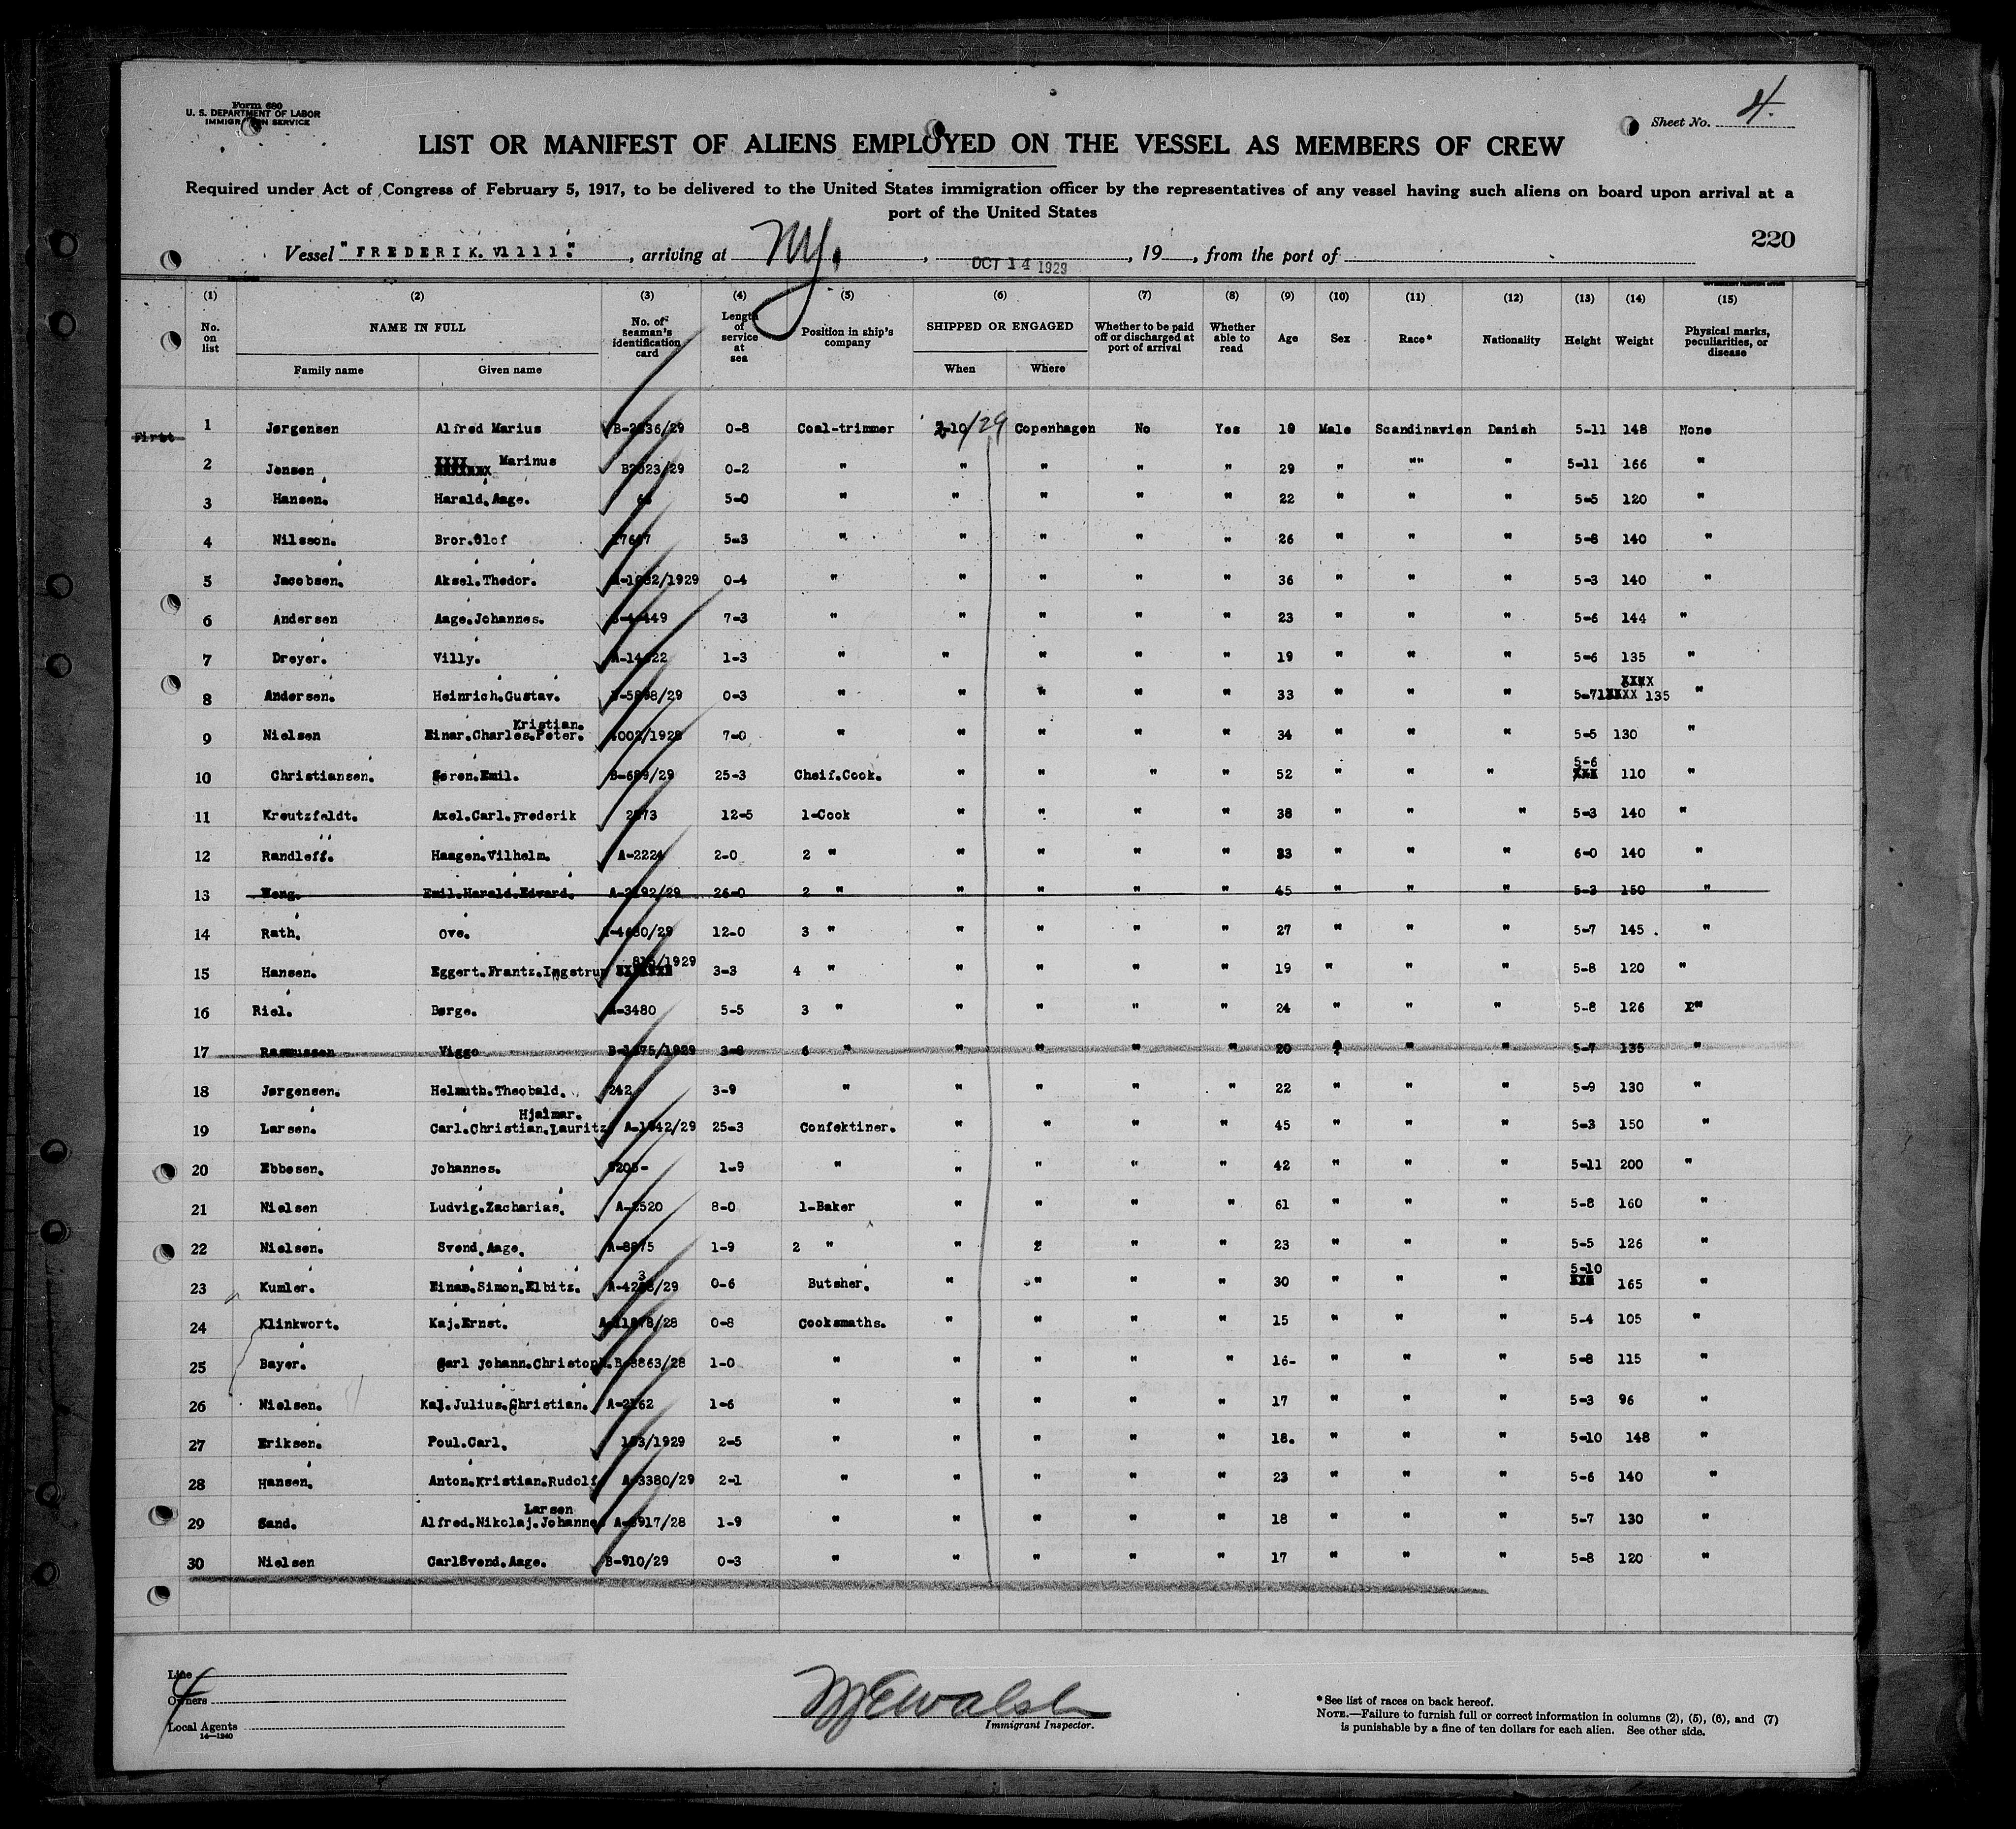 Form 680
U. S. DEPARTMENT OF LABOR
IMMIGRATION SERVICE
Sheet No. 4.
LIST OR MANIFEST OF ALIENS EMPLOYED ON THE VESSEL AS MEMBERS OF CREW
Required under Act of Congress of February 5, 1917, to be delivered to the United States immigration officer by the representatives of any vessel having such aliens on board upon arrival at a
port of the United States
220
Vessel "FREDERIK. V1111." , arriving at NY. , OCT 14 1929 , 19 , from the port of
(1) (2) (3) (4) (5) (6) (7) (8) (9) (10) (11) (12) (13) (14) (15)
No. on list NAME IN FULL Family name Given name No. of seaman's identification card Length of service at sea Position in ship's company SHIPPED OR ENGAGED When Where Whether to be paid off or discharged at port of arrival Whether able to read Age Sex Race* Nationality Height Weight Physical marks, peculiarities, or disease
First
1 Jørgensen Alfred Marius B-2636/29 0-8 Coal-trimmer 3-10/29 Copenhagen No Yes 19 Male Scandinavien Danish 5-11 148 None
2 Jensen Marinus B2023/29 0-2 " " " " " 29 " "" " 5-11 166 "
3 Hansen. Harald.Aage. 5-0 " " " " " 22 " " " 5-5 120 "
4 Nilsson. Bror.Olof 5-3 " " " " " 26 " " " 5-8 140 "
5 Jacobsen. Aksel.Thedor. 0-4 " " " " " 36 " " " 5-3 140 "
6 Andersen Aage.Johannes. 7-3 " " " " " 23 " " " 5-6 144 "
7 Dreyer. Villy. 1-3 " " " " " 19 " " " 5-6 135 "
8 Andersen. Heinrich.Gustav. 0-3 " " " " " 33 " " " 5-7 135 "
9 Nielsen Einar.Charles.Peter. Kristian. 7-0 " " " " " 34 " " " 5-5 130 "
10 Christiansen. Søren.Emil. 25-3 Cheif.Cook. " " " " 52 " " " 5-6 110 "
11 Kreutzfeldt. Axel.Carl.Frederik 12-5 1-Cook " " " " 38 " " " 5-3 140 "
12 Randleff. Haagen.Vilhelm. A-2224 2-0 2 " " " " " 33 " " " 6-0 140 "
13 Emil.Harald.Edward. 26-0 2 " " " " " 45 " " " 5-3 150 "
14 Rath. Ove. 12-0 3 " " " " " 27 " " " 5-7 145 . "
15 Hansen. Eggert.Frantz.Ingstrup 3-3 4 " " " " " 19 " " " 5-8 120 "
16 Riel. Børge. A-3480 5-5 3 " " " " " 24 " " " 5-8 126 "
17 Rasmussen Viggo 6 " " " " " 20 " " 5-7 135 "
18 Jørgensen. Helmuth.Theobald. 242 3-9 " " " " " 22 " " " 5-9 130 "
19 Larsen. Carl.Christian.Lauritz Hjalmar. 25-3 Confektiner. " " " " 45 " " " 5-3 150 "
20 Ebbesen. Johannes. 1-9 " " " " " 42 " " " 5-11 200 "
21 Nielsen Ludvig.Zacharias. 8-0 1-Baker " " " " 61 " " " 5-8 160 "
22 Nielsen. Svend.Aage. 1-9 2 " " " " 23 " " " 5-5 126 "
23 Kumler. Einar.Simon.Elbitz. 0-6 Butsher. " " " " 30 " " " 5-10 165 "
24 Klinkwort. Kaj.Ernst. 0-8 Cooksmaths. " " " " 15 " " " 5-4 105 "
25 Bayer. Carl Johann.Christoph. B-3863/28 1-0 " " " " " 16- " " " 5-8 115 "
26 Nielsen. Kaj.Julius.Christian. 1-6 " " " " " 17 " " " 5-3 96 "
27 Eriksen. Poul.Carl. 2-5 " " " " " 18. " " " 5-10 148 "
28 Hansen. Anton.Kristian.Rudolf A-3380/29 2-1 " " " " " 23 " " " 5-6 140 "
29 Sand. Alfred.Nikolaj.Johannes Larsen 1-9 " " " " " 18 " " " 5-7 130 "
30 Nielsen CarlSvend.Aage. B-910/29 0-3 " " " " " 17 " " " 5-8 120 "
Line
Owners
Local Agents
4
14—1240
Immigrant Inspector.
*See list of races on back hereof.
NOTE.—Failure to furnish full or correct information in columns (2), (5), (6), and (7)
is punishable by a fine of ten dollars for each alien. See other side.